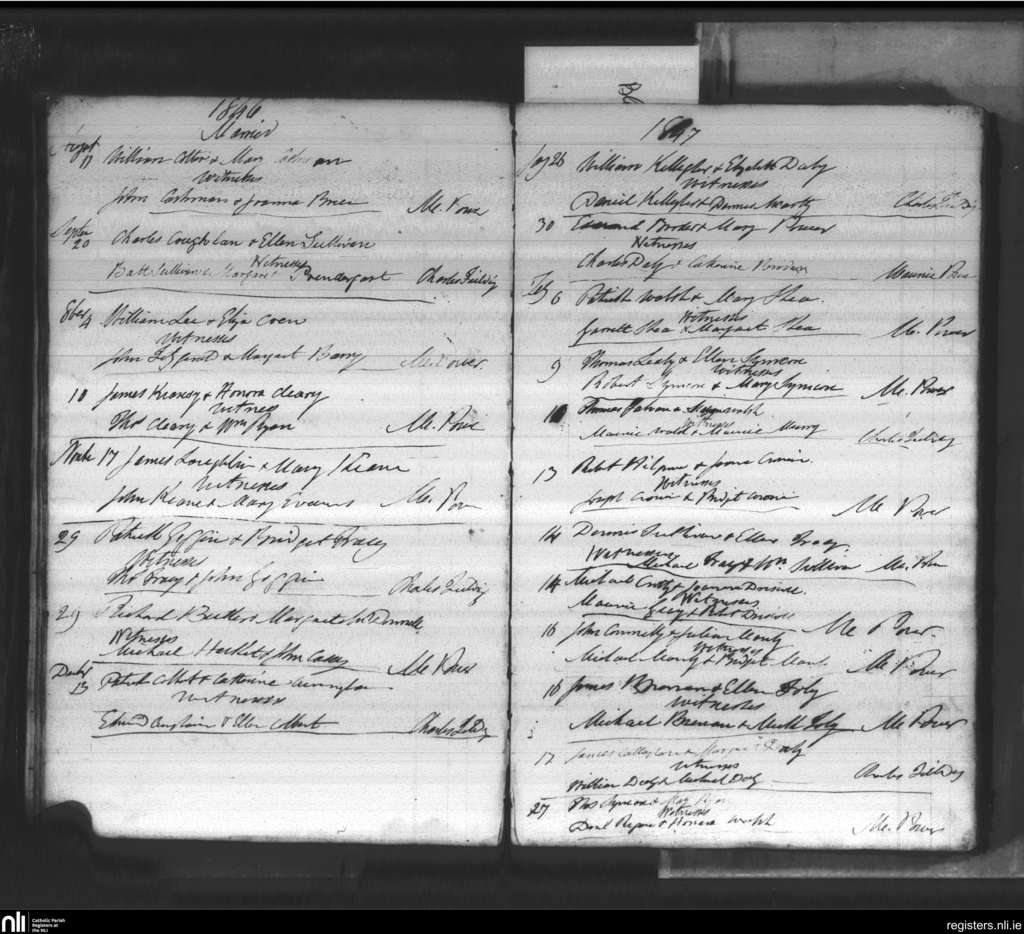 1846
Married
August
17 William Cotter & Mary
Witnesses
John Cashman & Joanna Brien M. Power
Septer
20 Charles Coughlan & Ellen Sullivan
Witnesses
Batt Sullivan & Margaret Prendergast Charles Fielding
8ber
4 William Lee & Eliza Coen
Witnesses
John Fitzgerald & Margaret Barry M. Power
10 James Kearsy & Honora Cleary
Witness
Thos Cleary & Wm Ryan M. Power
Novbr 17 James Loughlin & Mary Keane
Witnesses
John Keane & Mary Evans M. Power
29 Patrick Geffin & Bridget Tracey
Witnesses
Thos Tracy & John Geffin Charles Fielding
29 Richard Butler & Margaret McDonnell
Witnesses
Michael Hacket & John Casey M. Power
Decbr
13 Patrick Abbot & Catherine
Witnesses
Edmund & Ellen Abbot Charles Fielding
1847
Jany 26 William Kellegher & Elizabeth Daly
Witnesses
Daniel Kellegher & Charles Fielding
30 Edmund & Mary Power
Witnesses
Charles Daly & Catherine Maurice Power
Feb 6 Patrick Walsh & Mary Shea
Witnesses
Garrett Shea & Margaret Shea M. Power
9 Thomas Leahy & Ellen Symcox
Witnesses
Robert Symcox & Mary Symcox M. Power
10 Thomas
Witnesses
Maurice Walsh & Maurice Charles Fielding
13 Robt & Joana Cronin
Witnesses
Joseph Cronin & Bridget Cronin M. Power
14 Dennis Sullivan & Ellen Tracy
Witnesses
Michael Tracy & Wm Sullivan M. Power
14 Michael & Joanna Driscoll
Witnesses
Maurice & Robert Driscoll M. Power
16 John Connelly & Julian Manly
Witnesses
Michael Manly & Bridget M. Power
16 James Brennan & Ellen Foly
Witnesses
Michael Brennan & Foly M. Power
17 James Callaghan & Margaret Daly
Witnesses
William Daly & Michael Daly Charles Fielding
27 Thos &
Witnesses
Danl & Honora Walsh M. Power
nli
Catholic Parish
Registers at
the NLI
registers.nli.ie